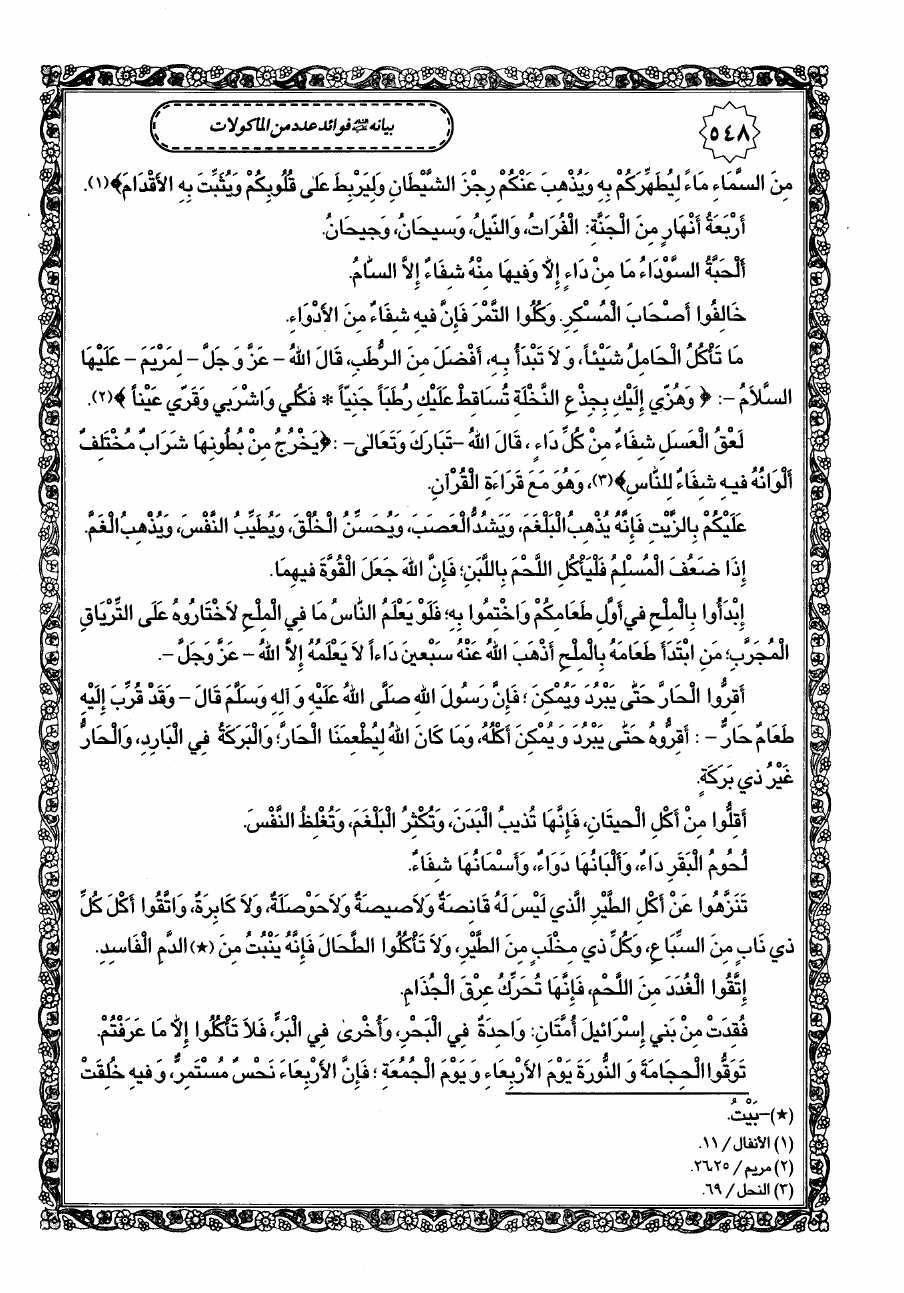 ٥٤٨
بيانه عليه السلام فوائد عدد من المأكولات
مِنَ السَّمَاءِ مَاءً لِيُطَهِّرَكُمْ بِهِ وَيُذْهِبَ عَنْكُمْ رِجْزَ الشَّيْطَانِ وَلِيَرْبِطَ عَلىٰ قُلُوبِكُمْ وَيُثَبِّتَ بِهِ الأَقْدَامَ﴾(١).
أَرْبَعَةُ أَنْهَارٍ مِنَ الْجَنَّةِ: الْفُرَاتُ، وَالنّيلُ، وَسيحَانُ، وَجيحَانُ.
أَلْحَبَّةُ السَّوْدَاءُ مَا مِنْ دَاءٍ إِلاَّ وَفيهَا مِنْهُ شِفَاءٌ إِلاَّ السَّامُ.
خَالِفُوا أَصْحَابَ الْمُسْكِرِ. وَكُلُوا التَّمْرَ فَإِنَّ فيهِ شِفَاءً مِنَ الأَدْوَاءِ.
مَا تَأْكُلُ الْحَامِلُ شَيْئاً، وَ لاَ تَبْدَأُ بِهِ، أَفْضَلَ مِنَ الرُّطَبِ، قَالَ اللهُ – عَزَّ وَ جَلَّ – لِمَرْيَمَ – عَلَيْهَا
السَّلاَمُ –: ﴿ وَهُزّي إِلَيْكِ بِجِذْعِ النَّخْلَةِ تُسَاقِطْ عَلَيْكِ رُطَباً جَنِيّاً * فَكُلي وَاشْرَبي وَقَرّي عَيْناً ﴾(٢).
لَعْقُ الْعَسَلِ شِفَاءٌ مِنْ كُلِّ دَاءٍ ، قَالَ اللهُ –تَبَارَكَ وَتَعَالىٰ– :﴿يَخْرُجُ مِنْ بُطُونِهَا شَرَابٌ مُخْتَلِفٌ
أَلْوَانُهُ فيهِ شِفَاءٌ لِلنَّاسِ﴾(٣)، وَهُوَ مَعَ قَرَاءَةِ الْقُرْآنِ.
عَلَيْكُمْ بِالزَّيْتِ فَإِنَّهُ يُذْهِبُ الْبَلْغَمَ، وَيَشُدُّ الْعَصَبَ، وَيُحَسِّنُ الْخُلْقَ، وَيُطَيِّبُ النَّفْسَ، وَيُذْهِبُ الْغَمَّ.
إِذَا ضَعُفَ الْمُسْلِمُ فَلْيَأْكُلِ اللَّحْمَ بِاللَّبَنِ؛ فَإِنَّ اللهَ جَعَلَ الْقُوَّةَ فيهِمَا.
إِبْدَأُوا بِالْمِلْحِ في أَوَّلِ طَعَامِكُمْ وَاخْتِمُوا بِهِ؛ فَلَوْ يَعْلَمُ النَّاسُ مَا فِي الْمِلْحِ لاَخْتَارُوهُ عَلَى التِّرْيَاقِ
الْمُجَرَّبِ؛ مَنِ ابْتَدَأَ طَعَامَهُ بِالْمِلْحِ أَذْهَبَ اللهُ عَنْهُ سَبْعينَ دَاءاً لاَ يَعْلَمُهُ إِلاَّ اللهُ – عَزَّ وَجَلَّ –.
أَقِرُّوا الْحَارَّ حَتّٰى يَبْرُدَ وَيُمْكِنَ ؛ فَإِنَّ رَسُولَ اللهِ صَلَّى اللهُ عَلَيْهِ وَ آلِهِ وَسَلَّمَ قَالَ – وَقَدْ قُرِّبَ إِلَيْهِ
طَعَامٌ حَارٌّ – : أَقِرُّوهُ حَتّٰى يَبْرُدَ وَ يُمْكِنَ أَكْلُهُ، وَمَا كَانَ اللهُ لِيُطْعِمَنَا الْحَارَّ؛ وَالْبَرَكَةُ فِي الْبَارِدِ، وَالْحَارُّ
غَيْرُ ذي بَرَكَةٍ.
أَقِلُّوا مِنْ أَكْلِ الْحيتَانِ، فَإِنَّهَا تُذيبُ الْبَدَنَ، وَتُكْثِرُ الْبَلْغَمَ، وَتُغْلِظُ النَّفْسَ.
لُحُومُ الْبَقَرِ دَاءٌ، وَأَلْبَانُهَا دَوَاءٌ، وَأَسْمَانُهَا شِفَاءٌ.
تَنَزَّهُوا عَنْ أَكْلِ الطَّيْرِ الَّذي لَيْسَ لَهُ قَانِصَةٌ وَلاَصيصَةٌ وَلاَحَوْصَلَةٌ، وَلاَ كَابِرَةٌ، وَاتَّقُوا أَكْلَ كُلِّ
ذي نَابٍ مِنَ السِّبَاعِ، وَكُلِّ ذي مِخْلَبٍ مِنَ الطَّيْرِ، وَلاَ تَأْكُلُوا الطِّحَالَ فَإِنَّهُ يَنْبُتُ مِنَ (★)الدَّمِ الْفَاسِدِ.
إِتَّقُوا الْغُدَدَ مِنَ اللَّحْمِ، فَإِنَّهَا تُحَرِّكُ عِرْقَ الْجُذَامِ.
فُقِدَتْ مِنْ بَني إِسْرَائيلَ أُمَّتَانِ: وَاحِدَةٌ فِي الْبَحْرِ، وَأُخْرىٰ فِي الْبَرِّ، فَلاَ تَأْكُلُوا إِلاَّ مَا عَرَفْتُمْ.
تَوَقُّوا الْحِجَامَةَ وَ النُّورَةَ يَوْمَ الأَرْبِعَاءِ وَ يَوْمَ الْجُمُعَةِ ؛ فَإِنَّ الأَرْبِعَاءَ نَحْسٌ مُسْتَمِرٌّ، وَ فيهِ خُلِقَتْ
(★)–بَيْتُ.
(١) الأنفال / ١١.
(٢) مريم / ٢٥،٢٦.
(٣) النحل / ٦٩.